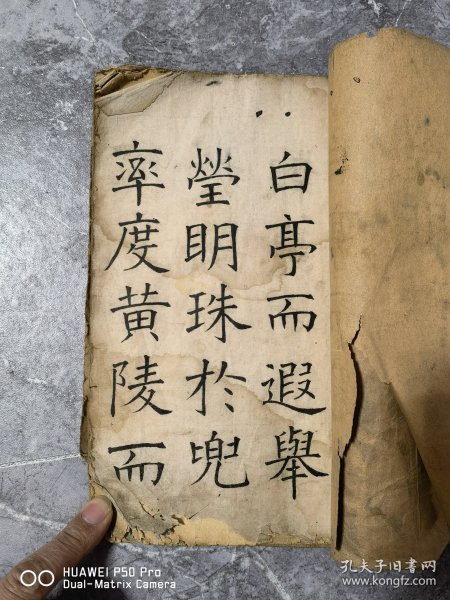 白亭而遐舉
瑩明珠於兜
率度黄陵而
HUAWEI P50 Pro
Dual-Matrix Camera
孔夫子旧書网
www.kongfz.com